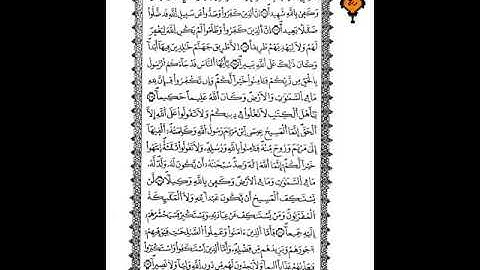 وَكَفَىٰ بِاللَّهِ شَهِيدًا إِنَّ الَّذِينَ كَفَرُوا وَصَدُّوا عَن سَبِيلِ اللَّهِ قَدْ ضَلُّوا
ضَلَٰلًا بَعِيدًا إِنَّ الَّذِينَ كَفَرُوا وَظَلَمُوا لَمْ يَكُنِ اللَّهُ لِيَغْفِرَ
لَهُمْ وَلَا لِيَهْدِيَهُمْ طَرِيقًا إِلَّا طَرِيقَ جَهَنَّمَ خَٰلِدِينَ فِيهَا أَبَدًا
وَكَانَ ذَٰلِكَ عَلَى اللَّهِ يَسِيرًا يَٰأَيُّهَا النَّاسُ قَدْ جَاءَكُمُ الرَّسُولُ
بِالْحَقِّ مِن رَّبِّكُمْ فَـَٔامِنُوا خَيْرًا لَّكُمْ وَإِن تَكْفُرُوا فَإِنَّ لِلَّهِ
مَا فِي السَّمَٰوَٰتِ وَالْأَرْضِ وَكَانَ اللَّهُ عَلِيمًا حَكِيمًا
يَٰأَهْلَ الْكِتَٰبِ لَا تَغْلُوا فِي دِينِكُمْ وَلَا تَقُولُوا عَلَى اللَّهِ إِلَّا
الْحَقَّ إِنَّمَا الْمَسِيحُ عِيسَى ابْنُ مَرْيَمَ رَسُولُ اللَّهِ وَكَلِمَتُهُ أَلْقَىٰهَا
إِلَىٰ مَرْيَمَ وَرُوحٌ مِّنْهُ فَـَٔامِنُوا بِاللَّهِ وَرُسُلِهِ وَلَا تَقُولُوا ثَلَٰثَةٌ انتَهُوا
خَيْرًا لَّكُمْ إِنَّمَا اللَّهُ إِلَٰهٌ وَٰحِدٌ سُبْحَٰنَهُ أَن يَكُونَ لَهُ وَلَدٌ لَّهُ
مَا فِي السَّمَٰوَٰتِ وَمَا فِي الْأَرْضِ وَكَفَىٰ بِاللَّهِ وَكِيلًا لَّن
يَسْتَنكِفَ الْمَسِيحُ أَن يَكُونَ عَبْدًا لِّلَّهِ وَلَا الْمَلَٰئِكَةُ
الْمُقَرَّبُونَ وَمَن يَسْتَنكِفْ عَنْ عِبَادَتِهِ وَيَسْتَكْبِرْ فَسَيَحْشُرُهُمْ
إِلَيْهِ جَمِيعًا فَأَمَّا الَّذِينَ ءَامَنُوا وَعَمِلُوا الصَّٰلِحَٰتِ فَيُوَفِّيهِمْ
أُجُورَهُمْ وَيَزِيدُهُم مِّن فَضْلِهِ وَأَمَّا الَّذِينَ اسْتَنكَفُوا وَاسْتَكْبَرُوا
فَيُعَذِّبُهُمْ عَذَابًا أَلِيمًا وَلَا يَجِدُونَ لَهُم مِّن دُونِ اللَّهِ وَلِيًّا وَلَا نَصِيرًا